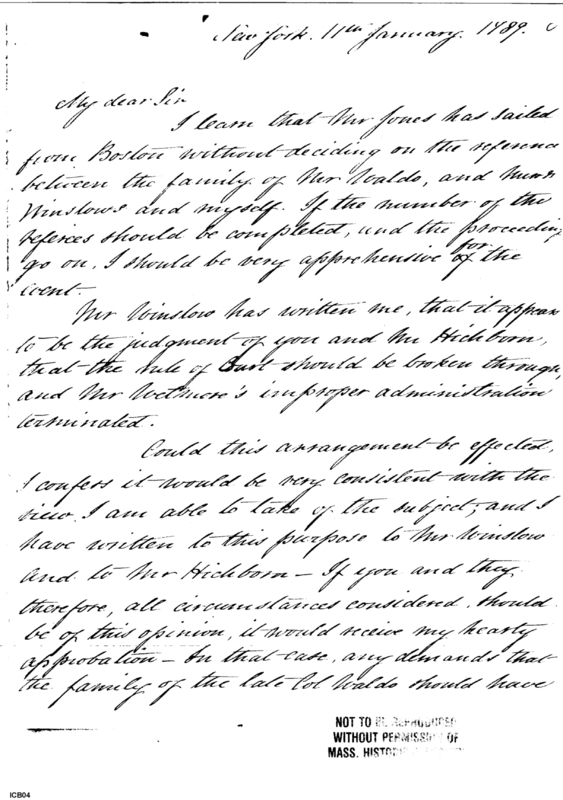 New York. 11th January. 1789.
My dear Sir
I learn that Mr Jones has sailed
from Boston without deciding on the reference
between the family of Mr Waldo, and
Winslows and myself. If the number of the
referees should be completed, and the proceeding
go on, I should be very apprehensive for the
event.
Mr Winslow has written me, that it appears
to be the judgment of you and Mr Hichborn,
that the rule of Court should be broken through,
and Mr Wetmore's improper administration
terminated.
Could this arrangement be effected,
I confess it would be very consistent with the
view I am able to take of the subject, and I
have written to this purpose to Mr Winslow
and to Mr Hichborn — If you and they
therefore, all circumstances considered, should
be of this opinion, it would receive my hearty
approbation — In that case, any demands that
the family of the late Col Waldo should have
NOT TO BE REPRODUCED
WITHOUT PERMISSION OF
MASS. HISTORICAL
ICB04